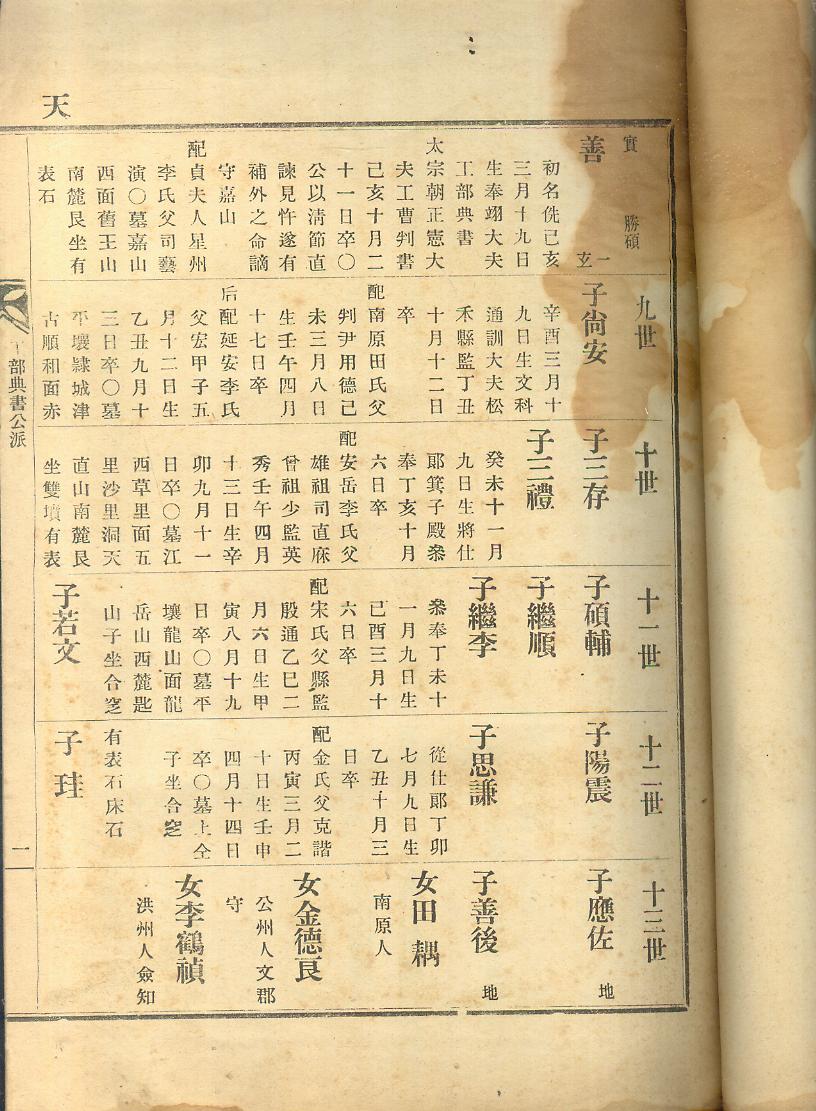 天
實
勝碩
善
一
玄
初名侁己亥
三月十九日
生奉翊大夫
工部典書
太宗朝正憲大
夫工曹判書
己亥十月二
十一日卒〇
公以淸節直
諫見忤遂有
補外之命謫
守嘉山
配貞夫人星州
李氏父司藝
演〇墓嘉山
西面舊王山
南麓艮坐有
表石
九世
子尙安
辛酉三月十
九日生文科
通訓大夫松
禾縣監丁丑
十月十二日
卒
配南原田氏父
判尹用德己
未三月八日
生壬午四月
十七日卒
后配延安李氏
父宏甲子五
月十二日生
乙丑九月十
三日卒〇墓
平壤隷城津
古順和面赤
十世
子三存
子三禮
癸未十一月
九日生將仕
郞箕子殿叅
奉丁亥十月
六日卒
配安岳李氏父
雄祖司直庥
曾祖少監英
秀壬午四月
十三日生辛
卯九月十一
日卒〇墓江
西草里面五
里沙里洞天
直山南麓艮
坐雙墳有表
十一世
子碩輔
子繼順
子繼李
叅奉丁未十
一月九日生
己酉三月十
六日卒
配宋氏父縣監
殷通乙巳二
月六日生甲
寅八月十九
日卒〇墓平
壤龍山面龍
岳山西麓匙
山子坐合窆
子若文
十二世
子陽震
子思謙
從仕郞丁卯
七月九日生
乙丑十月三
日卒
配金氏父克諧
丙寅三月二
十日生壬申
四月十四日
卒〇墓上仝
子坐合窆
有表石床石
子珪
十三世
子應佐
地
子善後
地
女田耦
南原人
女金德良
公州人文郡
守
女李鶴禎
洪州人僉知
部典書公派
一